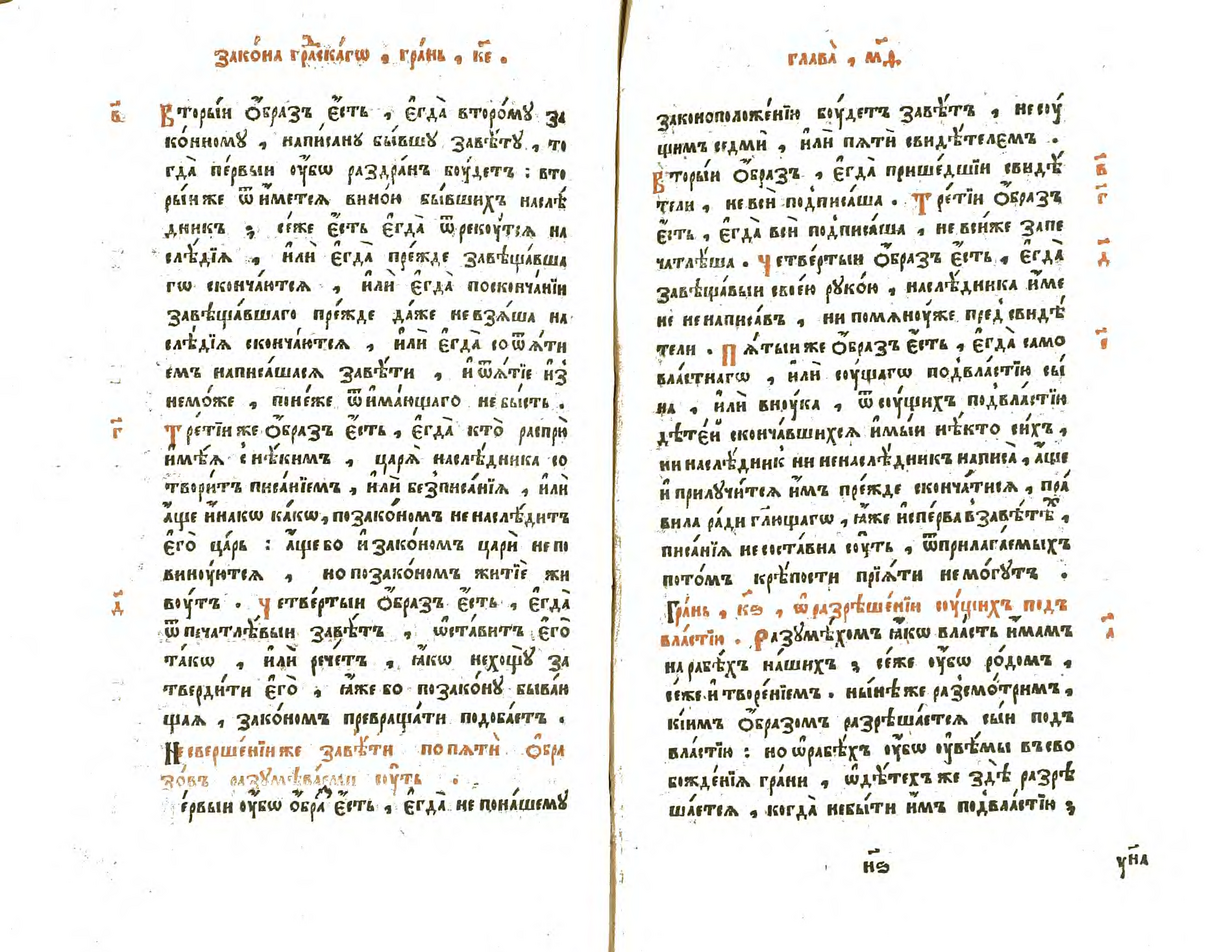 Зако́на гра́скагѡ , гра́нь , к҃е .
в҃
Вторы́и ѻ҆́бразъ є҆́сть , є҆гда̀ второ́мꙋ за
ко́нномꙋ , напи́санꙋ бы́вшꙋ завѣ́тꙋ , то
гда̀ пе́рвыи ᲂу҆́бѡ раздра́нъ бᲂу́детъ : вто
ры́и же ѿи́метсѧ вино́ю бы́вшихъ наслѣ́
дникъ ; се́же є҆́сть є҆гда̀ ѿрекᲂу́тсѧ на
слѣ́дїѧ , и҆лѝ є҆гда̀ пре́жде завѣща́вша
гѡ сконча́ютсѧ , и҆лѝ є҆гда̀ посконча́нїи
завѣща́вшаго пре́жде да́же не взѧ́ша на
слѣ́дїѧ сконча́ютсѧ , и҆лѝ є҆гда̀ со ѿѧ́ти
емъ написа́шасѧ завѣ́ти , и҆ ѿѧ́тїе и҆з
немо́же , поне́же ѿима́ющаго не бы́сть .
г҃
Тре́тїи же ѻ҆́бразъ є҆́сть , є҆гда̀ кто̀ распрю̀
и҆мѣ́ѧ с нѣ́кимъ , царѧ̀ наслѣ́дника со
твори́тъ писа́нїемъ , и҆лѝ без̾писа́нїѧ , и҆лѝ
а҆́ще и҆́накѡ ка́кѡ , позако́номъ не наслѣ́дитъ
є҆го̀ ца́рь : а҆́ще бо и҆ зако́номъ царѝ не по
винᲂу́ютсѧ , но позако́номъ житїѐ жи
вᲂу́тъ . Четве́ртыи ѻ҆́бразъ є҆́сть , є҆гда̀
д҃
ѿпечатлѣ́выи завѣ́тъ , ѡ҆ста́витъ є҆го̀
та́кѡ , и҆лѝ рече́тъ , ꙗ҆́кѡ нехощꙋ̀ за
тверди́ти є҆го̀ , ꙗ҆́же бо позако́нꙋ быва́ю
щаѧ , зако́номъ превраща́ти подоба́етъ .
Несверше́нїи же завѣ́ти по пѧтѝ ѻ҆бра
зо́въ разꙋмѣва́еми сᲂу́ть .
е́рвыи ᲂу҆́бѡ ѻ҆́бра є҆́сть , є҆гда̀ не пона́шемꙋ
Глава̀ , м҃д
законоположе́нїю бᲂу́детъ завѣ́тъ , не сᲂу́
щимъ седмѝ , и҆лѝ пѧтѝ свидѣ́телемъ .
в҃
Вторы́и ѻ҆́бразъ , є҆гда̀ прише́дшїи свидѣ́
тели , не всѝ подписа́ша . Тре́тїи ѻ҆́бразъ
г҃
є҆́сть , є҆гда̀ всѝ подписа́ша , не вси́же запе
чатлѣ́ша . Четве́ртыи ѻ҆́бразъ є҆́сть , є҆гда̀
д҃
завѣща́выи свое́ю рꙋко́ю , наслѣ́дника и҆́ме
не ненаписа́въ , ни помѧнᲂу́же пред̾ свидѣ́
тели . Пѧ́тыи же ѻ҆́бразъ є҆́сть , є҆гда̀ само
е҃
вла́стнагѡ , и҆лѝ сᲂу́щагѡ под̾вла́стїю сы́
на , и҆лѝ внᲂу́ка , ѿ сᲂу́щихъ под̾вла́стїю
дѣте́й сконча́вшихсѧ и҆мы́и нѣ́кто си́хъ ,
ни наслѣ́дникъ ни ненаслѣ́дникъ написа̀ , а҆́ще
и҆ прилꙋчи́тсѧ и҆̀мъ пре́жде сконча́тисѧ , пра́
вила ра́ди гл҃ющагѡ , ꙗ҆́же и҆спе́рва в завѣ́тѣх ,
писа́нїѧ несоста́вна сᲂу́ть , ѿприлага́емыхъ
пото́мъ крѣ́пости прїѧ́ти немо́гꙋтъ .
Гра́нь , к҃ѕ , ѡ҆ разрѣше́нїи сᲂу́щихъ подъ
вла́стїю . Разꙋмѣ́хомъ ꙗ҆́кѡ вла́сть и҆́мамъ
а҃
на рабѣ́хъ на́шихъ ; се́же ᲂу҆́бѡ ро́домъ ,
се́же и҆ творе́нїемъ . ны́нѣ же раз̾смо́тримъ ,
кі́имъ ѻ҆́бразомъ разрѣша́етсѧ сы́и подъ
вла́стїю : но ѡ҆ рабѣ́хъ ᲂу҆́бѡ ᲂу҆вѣ́мы въ сво
божде́нїѧ гра́ни , ѡ҆ дѣ́техъ же здѣ̀ разрѣ
ша́етсѧ , когда̀ не бы́ти и҆̀мъ под̾вла́стїю ;
н҃ѕ
ᲂу҆на